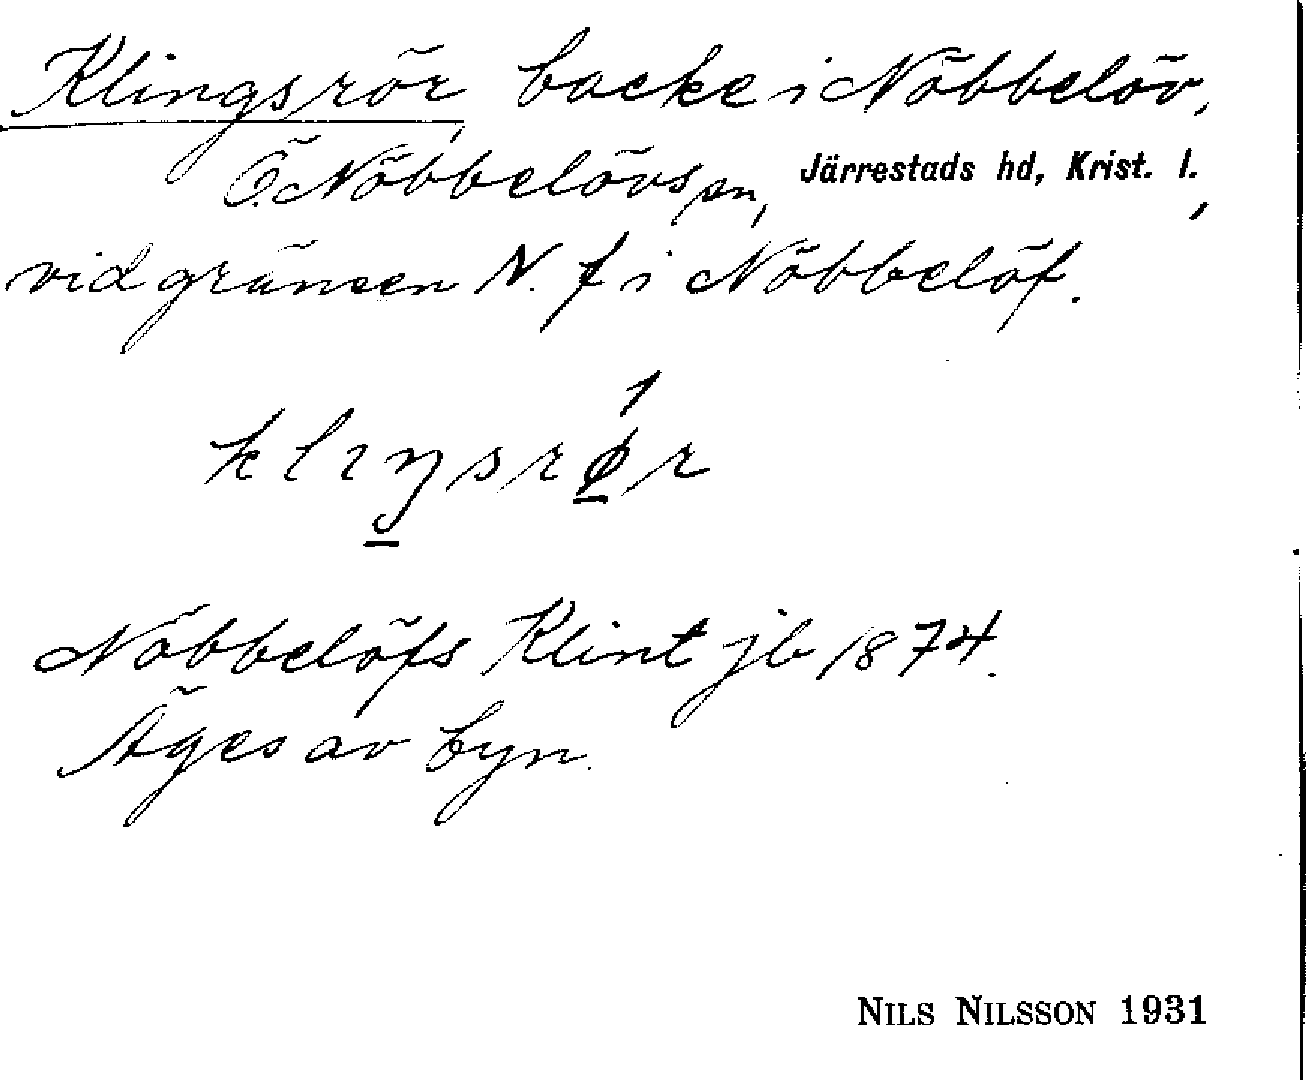 Klingsrör, backe i Nöbbelöv,
Ö. Nöbbelövs sn, Järrestads hd, Krist. l.,
vid gränsen N. f i Nöbbelöf.
klıŋsrǿ̱r
Nöbbelöfs Klint jb 1874.
Äges av byn.
NILS NILSSON 1931